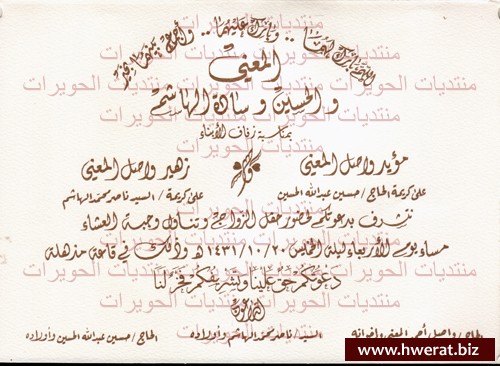 اللهم بارك لهما .. وبارك عليهما .. واجمع بينهما بخير
المعني
والحسين وسادة الهاشم
بمناسبة زفاف الأبناء
مؤيد واصل المعني
زهير واصل المعني
على كريمة الحاج / حسين عبدالله الحسين
على كريمة / السيد ناصر محمد الهاشم
نتشرف بدعوتكم لحضور حفل الزواج وتناول وجبة العشاء
مساء يوم الأربعاء ليلة الخميس ٢٠/١٠/١٤٣١هـ وذلك في قاعة مذهلة
دعوتكم حق علينا وتشريفكم فخر لنا
الداعون
الحاج / واصل أحمد المعني وإخوانه
السيد / ناصر محمد الهاشم وأولاده
الحاج / حسين عبدالله الحسين وأولاده
منتديات الحويرات
www.hwerat.biz